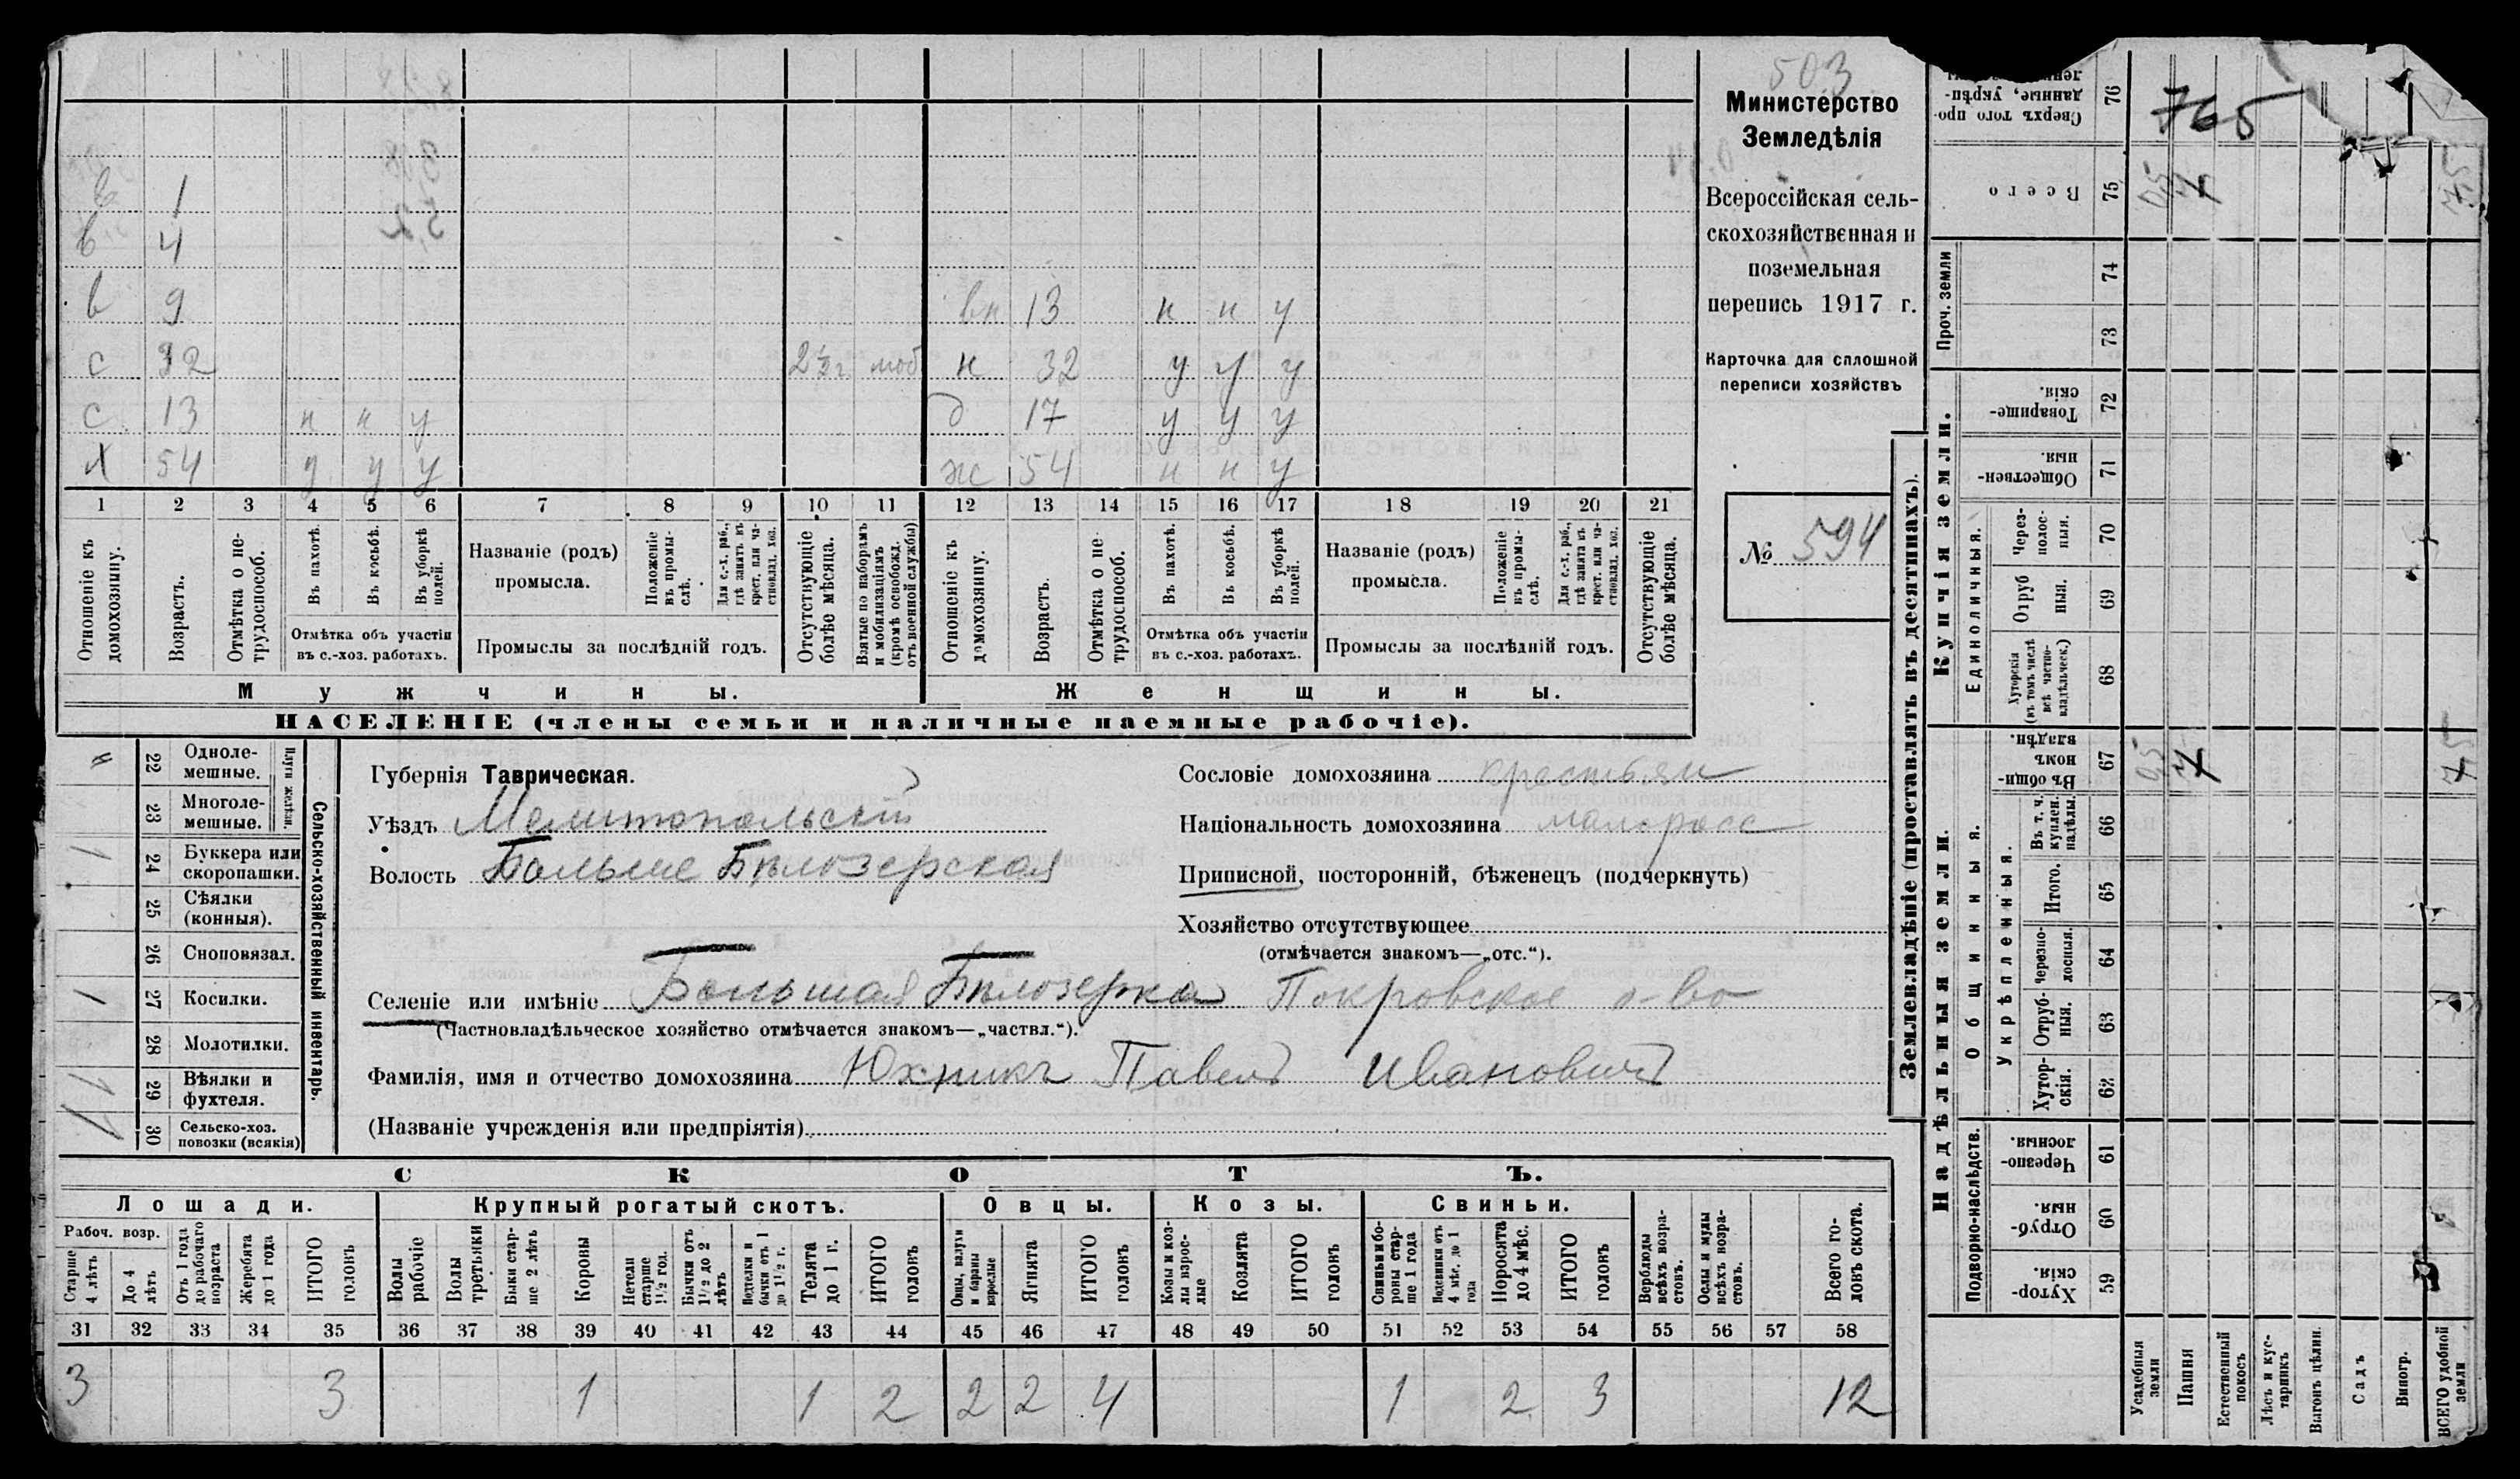 503
Министерство
Земледѣлія
Всероссійская сель-
скохозяйственная и
поземельная
перепись 1917 г.
Карточка для сплошной
переписи хозяйствъ
№ 594
в 1
в 4
в 9 вн 13 н н у
с 32 2½ г. моб н 32 у у у
с 13 н н у д 17 у у у
х 54 у у у ж 54 н н у
1 2 3 4 5 6 7 8 9 10 11 12 13 14 15 16 17 18 19 20 21
Отношеніе къ домохозяину.
Возрастъ.
Отмѣтка о не-трудоспособ.
Въ пахотѣ.
Въ косьбѣ.
Въ уборкѣ полей.
Отмѣтка объ участіи
въ с.-хоз. работахъ.
Названіе (родъ)
промысла.
Положеніе въ промы-слѣ.
Для с.-х. раб., гдѣ занятъ въ крест. или ча-стновлад. хоз.
Промыслы за послѣдній годъ.
Отсутствующіе болѣе мѣсяца.
Взятые по наборамъ и мобилизаціямъ (кромѣ освобожд. отъ военной службы)
Отношеніе къ домохозяину.
Возрастъ.
Отмѣтка о не-трудоспособ.
Въ пахотѣ.
Въ косьбѣ.
Въ уборкѣ полей.
Отмѣтка объ участіи
въ с.-хоз. работахъ.
Названіе (родъ)
промысла.
Положеніе въ промы-слѣ.
Для с.-х. раб., гдѣ занята въ крест. или ча-стновлад. хоз.
Промыслы за послѣдній годъ.
Отсутствующіе болѣе мѣсяца.
Мужчины. Женщины.
НАСЕЛЕНІЕ (члены семьи и наличные наемные рабочіе).
Сельско-хозяйственный инвентарь.
Плуги желѣзн.
22 Одноле-мешные.
23 Многоле-мешные.
1 24 Буккера или скоропашки.
25 Сѣялки (конныя).
26 Сноповязал.
1 27 Косилки.
28 Молотилки.
29 Вѣялки и фухтеля.
30 Сельско-хоз. повозки (всякія)
Губернія Таврическая.
Уѣздъ Мелитопольскій
Волость Больше Бѣлозерская
Сословіе домохозяина крестьян
Національность домохозяина малоросс
Приписной, посторонній, бѣженецъ (подчеркнуть)
Хозяйство отсутствующее
(отмѣчается знакомъ—„отс.“).
Селеніе или имѣніе Большая Бѣлозерка Покровское о-во
(Частновладѣльческое хозяйство отмѣчается знакомъ—„частвл.“).
Фамилія, имя и отчество домохозяина Юхникъ Павелъ Ивановичъ
(Названіе учрежденія или предпріятія)
СКОТЪ.
Лошади. Крупный рогатый скотъ. Овцы. Козы. Свиньи.
Рабоч. возр.
Старше 4 лѣтъ
До 4 лѣтъ
Отъ 1 года до рабочаго возраста
Жеребята до 1 года
ИТОГО головъ
Волы рабочіе
Волы третьяки
Быки стар-ше 2 лѣтъ
Коровы
Нетели старше 1½ год.
Бычки отъ 1½ до 2 лѣтъ
Подтелки и бычки отъ 1 до 1½ г.
Телята до 1 г.
ИТОГО головъ
Овцы, валухи и бараны взрослые
Ягнята
ИТОГО головъ
Козы и коз-лы взрос-лые
Козлята
ИТОГО головъ
Свиньи и бо-ровы стар-ше 1 года
Подсвинки отъ 4 мѣс. до 1 года
Поросята до 4 мѣс.
ИТОГО головъ
Верблюды всѣхъ возра-стовъ.
Ослы и мулы всѣхъ возра-стовъ.
Всего го-ловъ скота.
31 32 33 34 35 36 37 38 39 40 41 42 43 44 45 46 47 48 49 50 51 52 53 54 55 56 57 58
3 3 1 1 2 2 2 4 1 2 3 12
Землевладѣніе (проставлять въ десятинахъ).
Надѣльныя земли. Купчія земли. Проч. земли
Подворно-наслѣдств.
Общинныя.
Укрѣпленныя.
Единоличныя.
76 Сверхъ того про-данныя, укрѣп-
765
75 Всего
74
73
72 Товарище-скія
71 Обществен-ныя.
70 Через-полос-ныя.
69 Отруб ныя.
68 Хуторскія (въ томъ числѣ всѣ частно-владѣльческ.)
67 Въ общи-номъ владѣн.
66 Въ т. ч. куплен. надѣлы.
65 Итого.
64 Черезпо-лосныя.
63 Отруб-ныя.
62 Хутор-скія.
61 Черезпо-лосныя.
60 Отруб-ныя.
59 Хутор-скія.
Усадебныя земли
Пашня
Естественный покосъ
Лѣсъ и кус-тарникъ
Выгонъ цѣлин.
Садъ
Виногр.
ВСЕГО удобной земли